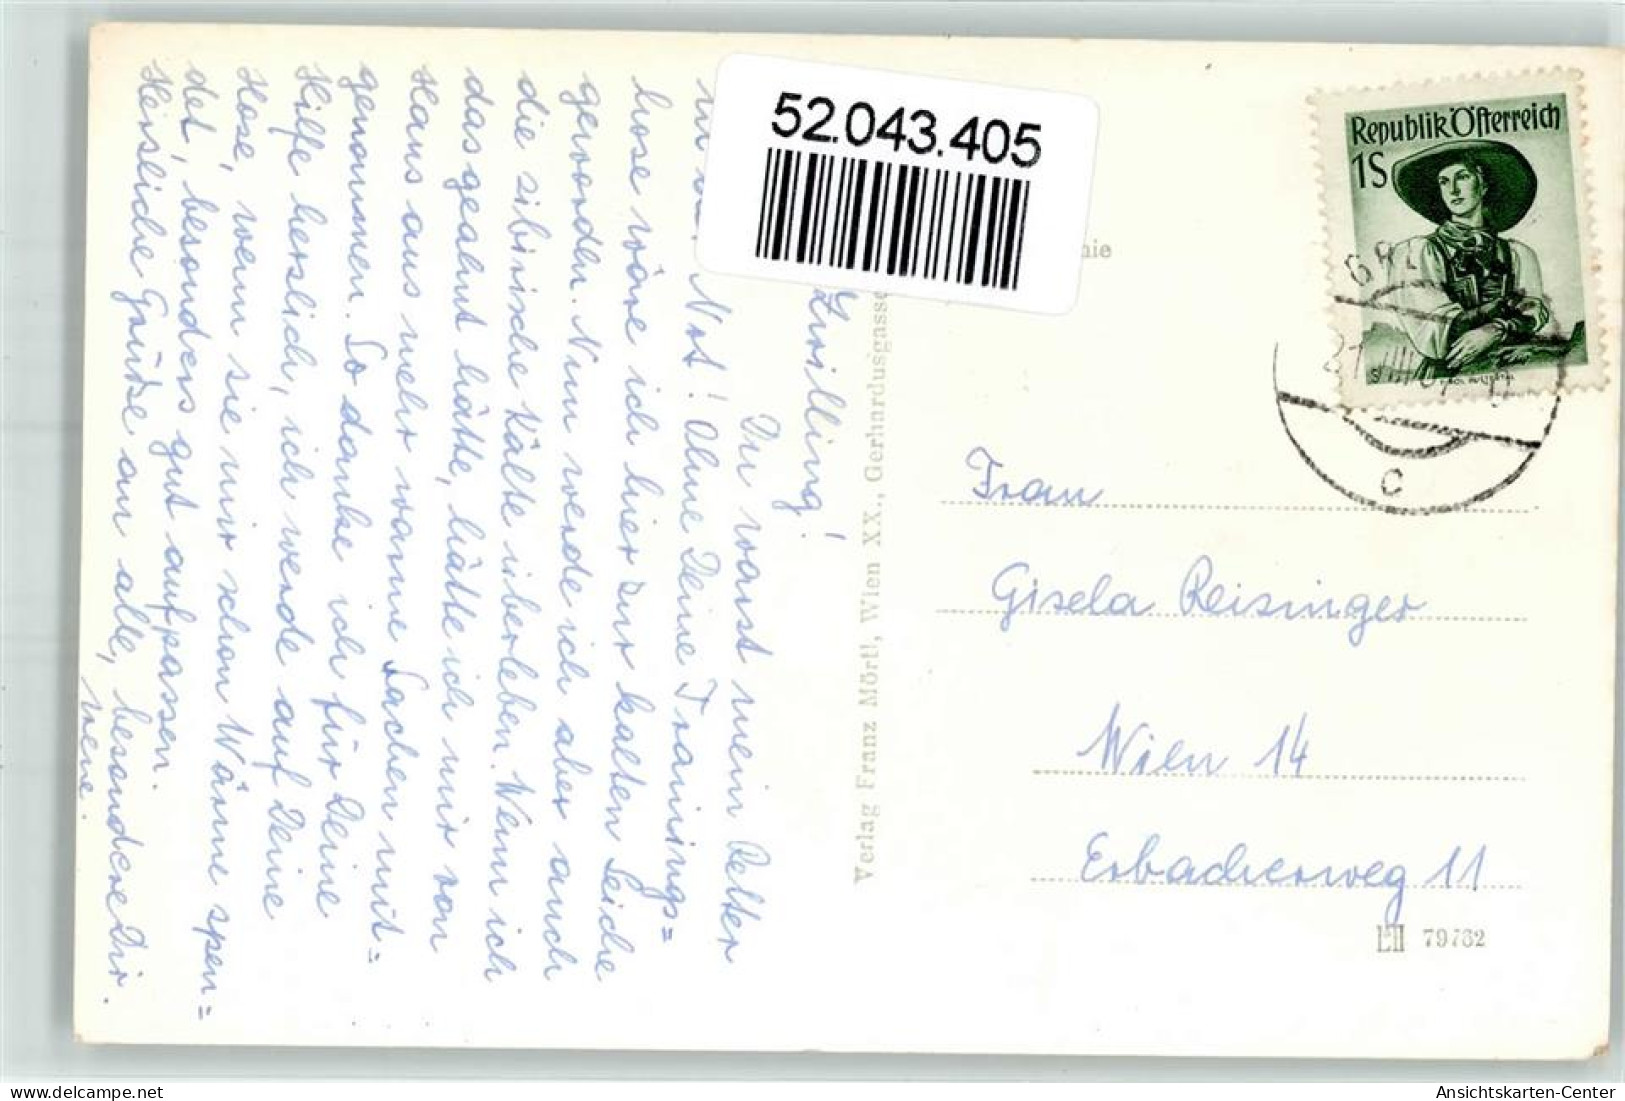 Zwilling!
Du warst mein Retter
in der Not! Ohne Deine Trainings=
hose wäre ich hier zur kalten Leiche
geworden. Nun werde ich aber auch
die sibirische Kälte überleben. Wenn ich
das geahnt hätte, hätte ich mir von
Haus aus mehr warme Sachen mit=
genommen. So danke ich für Deine
Hilfe herzlich, ich werde auf Deine
Hose, wenn sie mir schon Wärme spen=
det, besonders gut aufpassen.
Herzliche Grüße an alle, besondere Dir.
Verlag Franz Mörtl, Wien XX., Gerhardusgasse
52.043.405
Republik Österreich
1S
C
Frau
Gisela Reisinger
Wien 14
Erbacherweg 11
79762
Ansichtskarten-Center